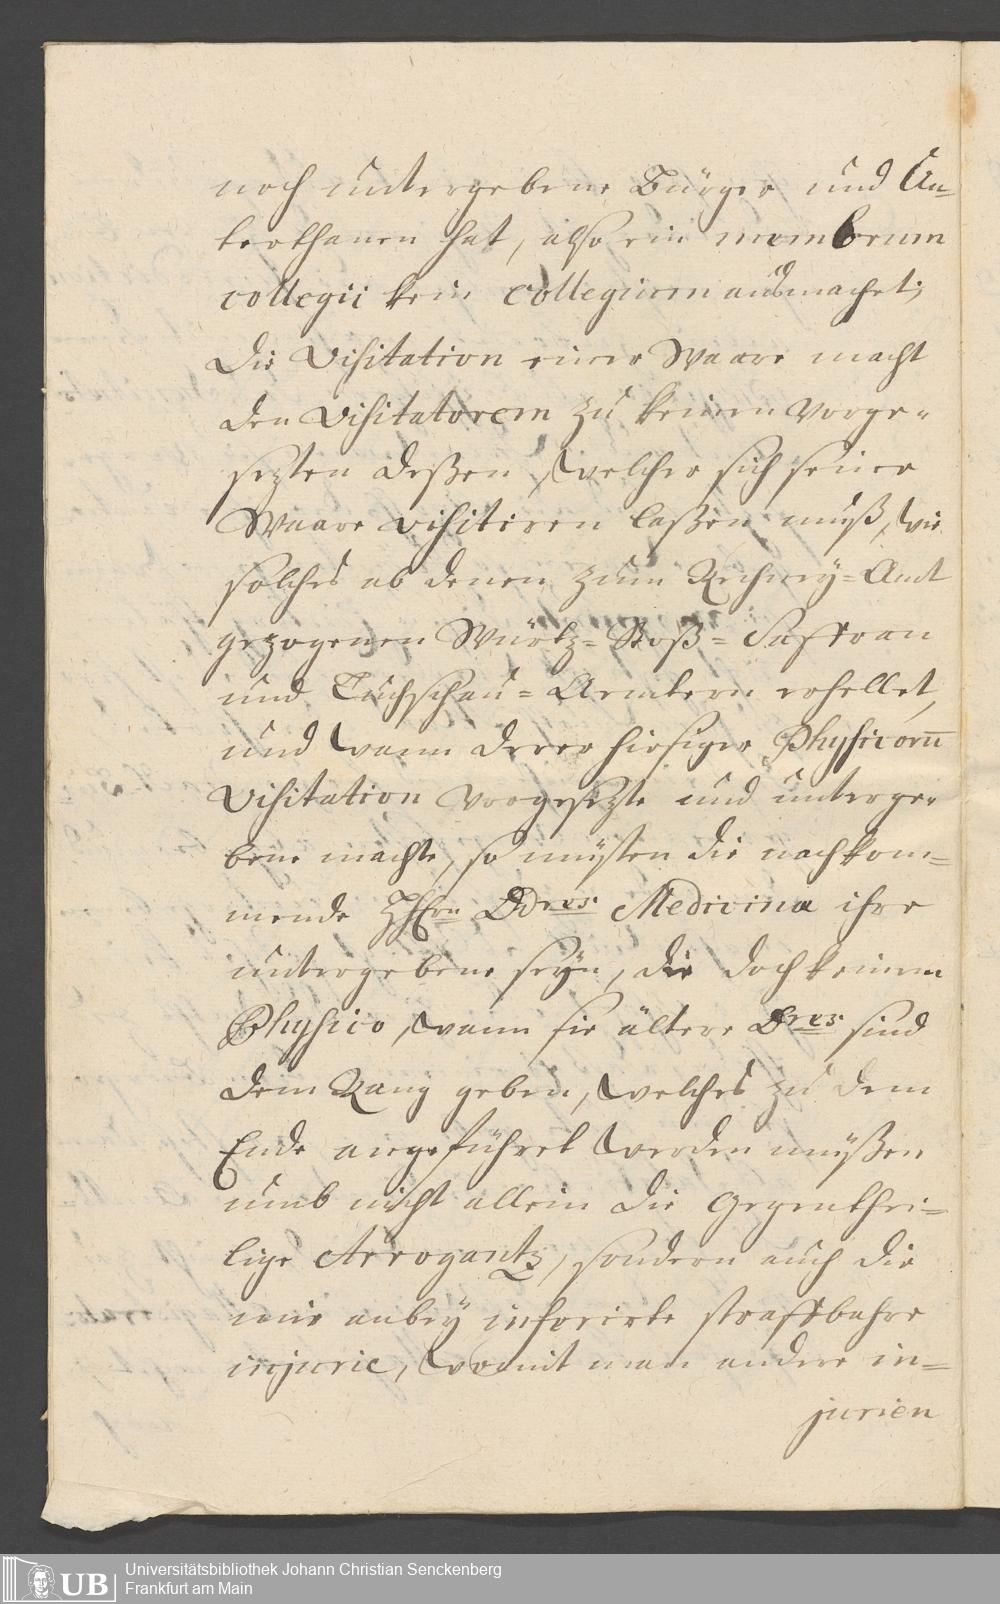 noch untergebene Bürger und Un-
terthanen hat, also ein membrum
collegii kein collegium ausmachet;
Die Visitation einer Waare macht
den Visitatorem zu keinen Vorge-
sezten deßen, welcher sich seiner
Waare visitiren laßen muß, wie
solches ab denen zum Rechney-Amt
gezogenen Würtz-Stoß-Saffran
und Tuchschau-Aemtern erhellet,
und wann derer hiesiger Physicorum
Visitation Vorgesezte und unterge-
bene machte, so müsten die nachkom-
mende HHrn DDres Medicinæ ihre
untergebene seÿn, die doch keinem
Physico, wann sie ältere Dres sind
dem Rang geben, welches zu dem
Ende angeführet werden müßen
umb nicht allein die Gegenthei-
lige Arrogantz, sondern auch die
mir anbeÿ inferirte straffbahre
injurie, womit man andere in-
jurien
Universitätsbibliothek Johann Christian Senckenberg
UB
Frankfurt am Main